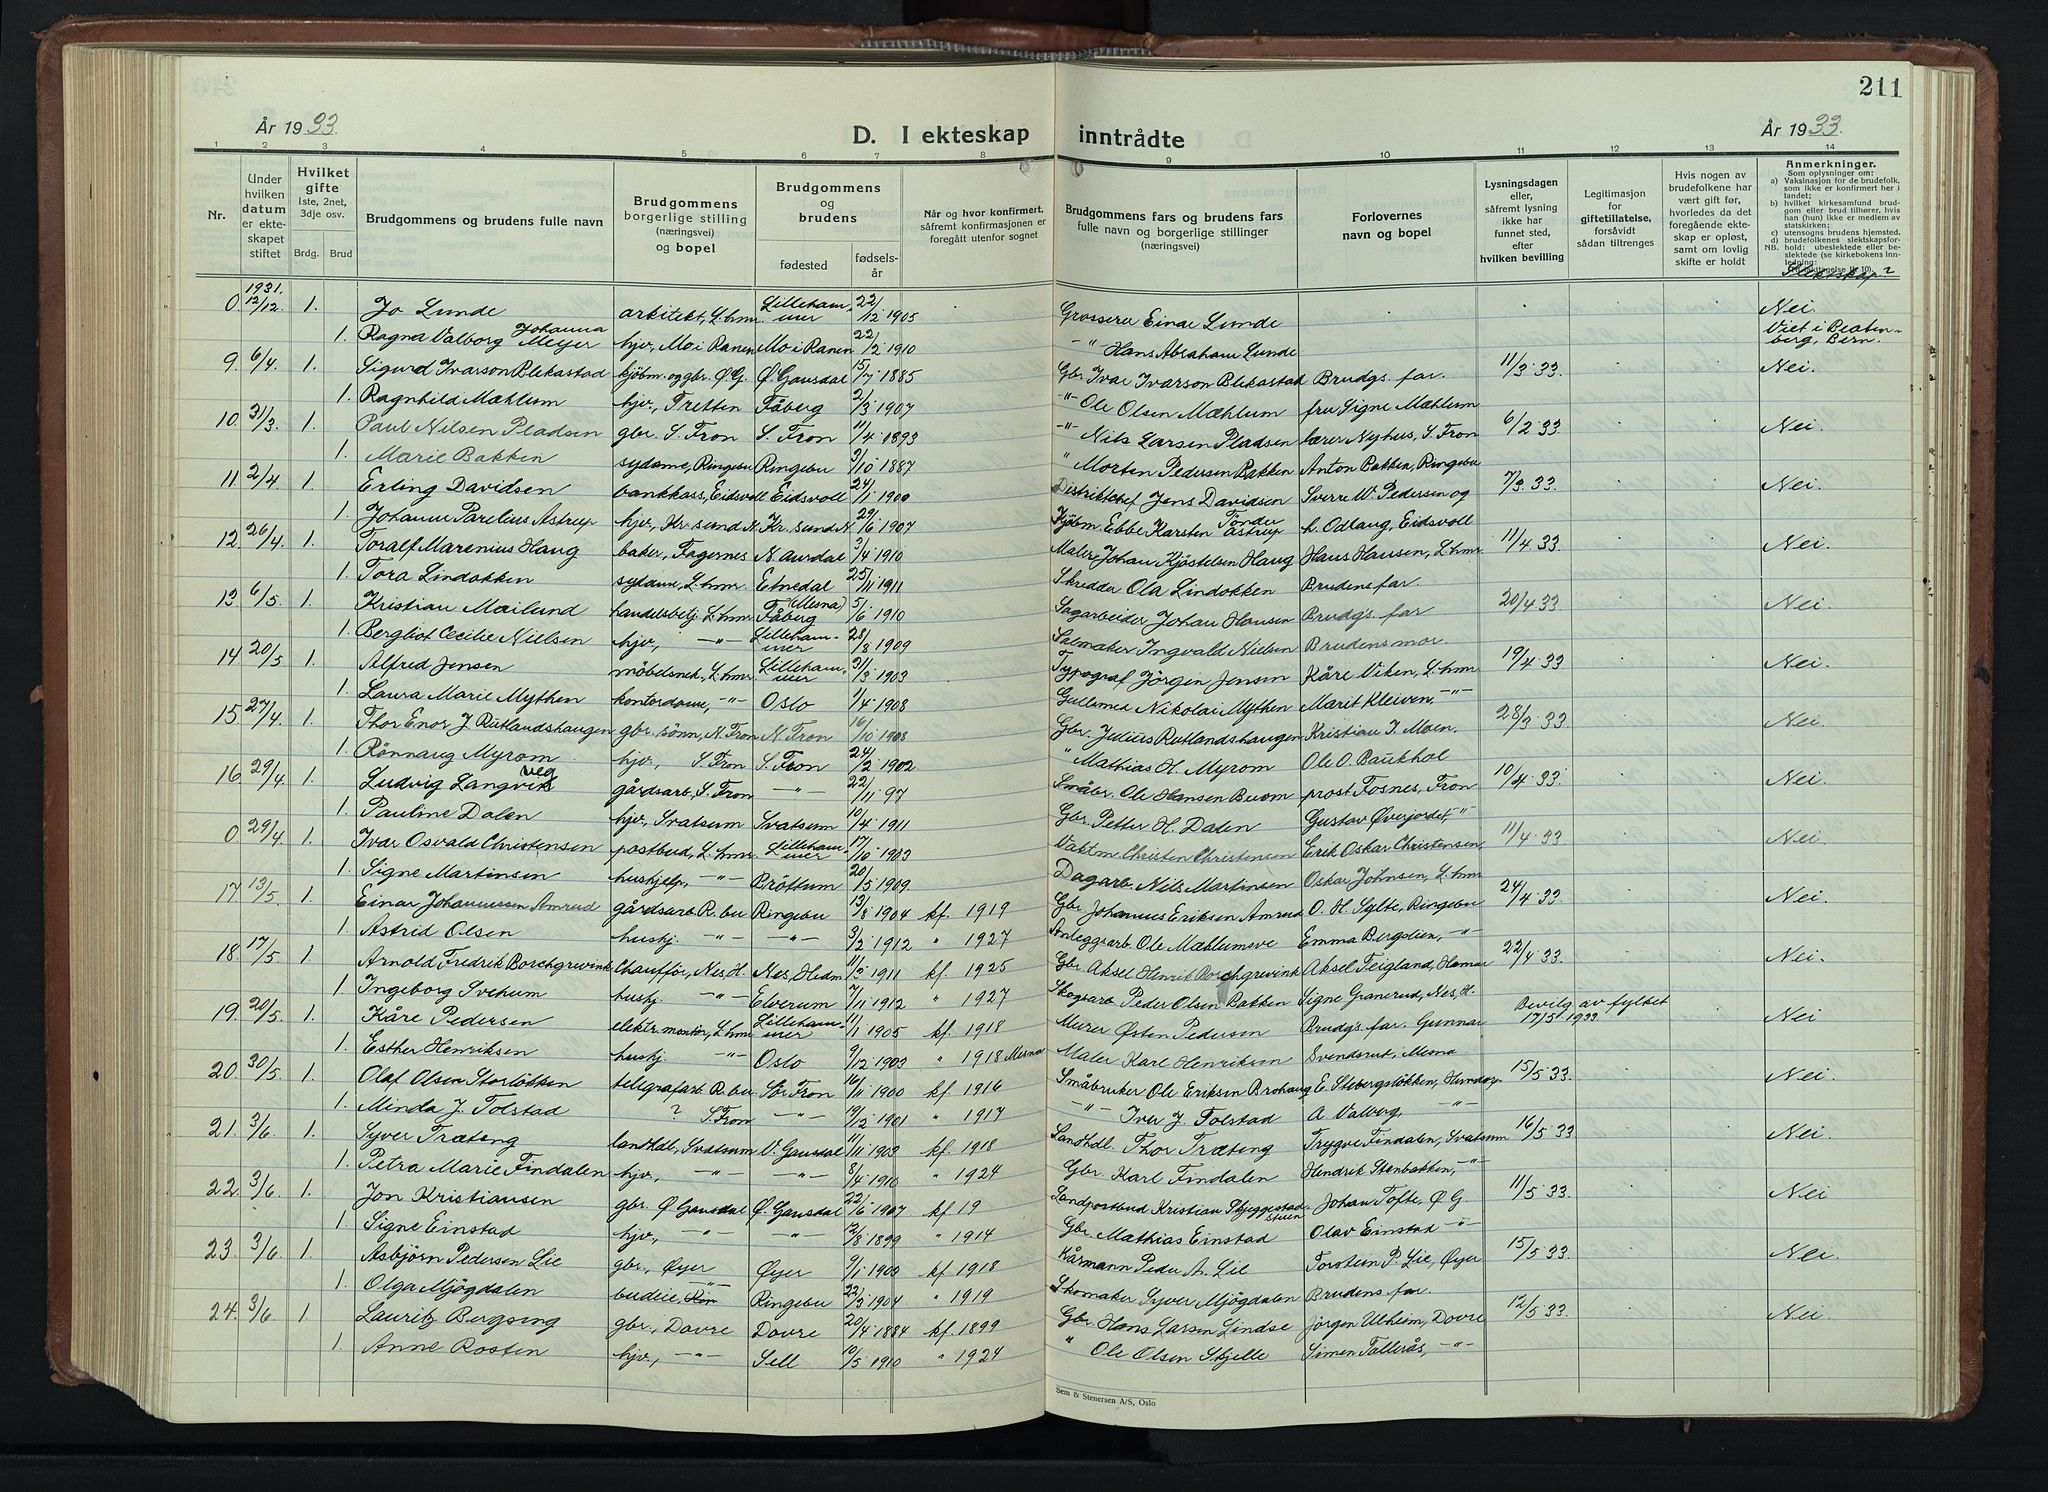 211
År 1933.
D. I ekteskap inntrådte
År 1933.
1 2 3 4 5 6 7 8 9 10 11 12 13 14
Nr.
Under hvilken datum er ekteskapet stiftet
Hvilket gifte 1ste, 2net, 3dje osv.
Brdg. Brud
Brudgommens og brudens fulle navn
Brudgommens borgerlige stilling (næringsvei) og bopel
Brudgommens og brudens
fødested
fødselsår
Når og hvor konfirmert, såfremt konfirmasjonen er foregått utenfor sognet
Brudgommens fars og brudens fars fulle navn og borgerlige stillinger (næringsvei)
Forlovernes navn og bopel
Lysningsdagen eller, såfremt lysning ikke har funnet sted, efter hvilken bevilling
Legitimasjon for giftetillatelse, forsåvidt sådan tiltrenges
Hvis nogen av brudefolkene har vært gift før, hvorledes da det foregående ekteskap er opløst, samt om lovlig skifte er holdt
Anmerkninger.
Som oplysninger om:
a) Vaksinasjon for de brudefolk, som ikke er konfirmert her i landet;
b) hvilket kirkesamfund brudgom eller brud tilhører, hvis han (hun) ikke er medlem av statskirken;
c) utensogns brudens hjemsted.
d) brudefolkenes slektskapsforhold: ubeslektede eller beslektede (se kirkebokens innledning:
NB.
Slektskap?
0 1931. 12/12. 1. Jo Lunde arkitekt, L.hmr. Lillehammer 22/12 1905 Grosserer Einar Lunde Nei.
1. Ragna Valborg Johanna Meyer hjv., Mo i Ranen Mo i Ranen 22/2 1910 -"- Hans Abraham Lunde Viet i Beatenberg, Bern.
9 6/4. 1. Sigurd Ivarson Blekastad kjøbm. og gbr. Ø.G. Ø. Gausdal 15/7 1885 Gbr. Ivar Ivarson Blekastad Brudgs. far. 11/3 33. Nei.
1. Ragnhild Mæhlum hjv., Tretten Fåberg 2/3 1907 -"- Ole Olsen Mæhlum fru Signe Mæhlum
10. 31/3. 1. Paul Nilsen Pladsen gbr. S. Fron S. Fron 11/4 1893 -"- Nils Larsen Pladsen lærer Nyhus, S. Fron 6/2 33. Nei.
1. Marie Bakken sydame, Ringebu Ringebu 3/10 1887 " Morten Pedersen Bakken Anton Bakken, Ringebu
11. 2/4. 1. Erling Davidsen bankkass., Eidsvoll Eidsvoll 24/1 1900 Distriktchef Jens Davidsen Sverre W. Pedersen og 7/3. 33. Nei.
1. Johanne Parelius Astrup hjv., Kr.sund N. Kr.sund N. 29/6 1907 Kjøbm. Ebbe Karsten Tønder Astrup h. Odlaug, Eidsvoll
12. 26/4. 1. Toralf Marenius Haug baker, Fagernes N. Aurdal 3/4 1910 Maler Johan Kjøstelsen Haug Hans Hansen, L.hmr. 11/4 33. Nei.
1. Tora Lindokken sydame, L.hmr. Etnedal 25/11 1911 Skredder Ola Lindokken Brudens far
13 6/5. 1. Kristian Mailund handelsbetj. L.hmr. (Mesna) Fåberg 5/6 1910 Sagarbeider Johan Hansen Brudgs. far 20/4 33. Nei.
1. Bergliot Cecilie Nielsen hjv., -"- Lillehammer 28/8 1909 Salmaker Ingvald Nielsen Brudens mor.
14 20/5 1. Alfred Jensen møbelsnek., L.hmr. Lillehammer 31/3 1903 Typograf Jørgen Jensen Kåre Viken, L.hmr. 19/4 33. Nei.
1. Laura Marie Mythen kontordame, -"- Oslo 1/4 1908 Gullsmed Nikolai Mythen Marit Kleiven, -"-
15 27/4. 1. Thor Enor J. Rutlandshaugen gbr. sønn, N. Fron N. Fron 16/10 1908 Gbr. Julius Rutlandshaugen Kristian I. Moen. 28/3 33. Nei.
1. Rønnaug Myrom hjv., S. Fron S. Fron 24/2 1902. " Mathias H. Myrom Ole O. Baukhol
16 29/4. 1. Ludvig Langviksveg gårdsarb., S. Fron -"- 22/11 97 Småbr. Ole Hansen Buom prost Fosnes, Fron 10/4 33. Nei.
1. Pauline Dalen hjv., Svatsum Svatsum 10/4 1911 Gbr. Petter H. Dalen Gustav Øverjordet, -"-
0. 29/4 1. Ivar Osvald Christensen postbud, L.hmr. Lillehammer 17/10 1903 Vaktm. Christen Christensen Erik Oskar Christensen, 11/4 33. Nei.
1. Signe Martinsen hushjelp, -"- Brøttum 20/5 1909. Dagarb. Nils Martinsen Oskar Johnsen, L.hmr
17 13/5 1. Einar Johannessen Amrud gårdsarb. R.bu Ringebu 13/8 1904 kf. 1919 Gbr. Johannes Eriksen Amrud O. H. Sylte, Ringebu 24/4 33. Nei.
1. Astrid Olsen hushj. -"- -"- 3/2 1912 " 1927 Anleggsarb. Ole Mæhlumsve Emma Bergslien, -"-
18. 17/5 1. Arnold Fredrik Borchgrevink Chauffør, Nes, H. Nes, Hedm 11/3 1911 kf. 1925 Gbr. Aksel Henrik Borchgrevink Aksel Teigland, Hamar 22/4 33. Nei.
1. Ingeborg Svehum hushj. -"- Elverum 7/11 1912 " 1927 Skogsarb. Peder Olsen Bakken Signe Granerud, Nes, H.
19. 20/5 1. Kåre Pedersen elektr. montør, L.hmr Lillehammer 11/1 1905 kf. 1918 Murer Østen Pedersen Brudg's far. Gunnar Bevilg. av fylket 17/5 1933 Nei
1. Esther Henriksen hushj. -"- Oslo 9/12 1903 " 1918 Mesna Maler Karl Henriksen Svendsrud, Mesna
20. 30/5. 1. Olaf Olsen Storløkken telegrafarb. R.bu Sør Fron 16/11 1900 kf. 1916 Småbruker Ole Eriksen Brohaug E. Stebergsløkken, Hundorp 15/5 33. Nei.
1. Minda J. Tolstad ? S. Fron -"- 19/12 1901 " 1917 -"- Iver J. Tolstad A. Valbog, -"-
21. 3/6. 1. Syver Træteng landhdl., Svatsum V. Gausdal 11/11 1903 kf. 1918 Landhdl. Thor Træteng Trygve Findalen, Svatsum 16/5 33 Nei.
1. Petra Marie Findalen hjv., -"- -"- 8/4 1910 " 1924 Gbr. Karl Findalen Hendrik Stenbakken, -"-
22. 3/6. 1. Jon Kristiansen gbr. Ø Gausdal Ø. Gausdal 22/6 1907 kf 19 Landpostbud Kristian Skjeggestadstuen Johan Tofte, Ø G. 11/5 33. Nei
1. Signe Einstad hjv., " -"- 12/8 1899 " 1914 Gbr. Mathias Einstad Olav Einstad -"-
23. 3/6. 1. Asbjørn Pedersen Lie gbr., Øyer Øyer 9/1 1903 kf 1918 Kårmann Peder A. Lie Torstein P. Lie, Øyer 15/5 33. Nei.
1. Olga Mjøgdalen budeie, -"- Ringebu 22/3 1904 " 1919 Skomaker Syver Mjøgdalen Brudens far.
24. 3/6. 1. Lauritz Bergseng gbr., Dovre Dovre 20/4 1884 kf. 1899 Gbr. Hans Larsen Lindsø Jørgen Ulheim, Dovre 12/5 33. Nei.
1. Anne Rosten hjv., -"- Sell 10/5 1910 " 1924 " Ole Olsen Skjelle Simen Tallerås, -"-
Sem & Stenersen A/S, Oslo